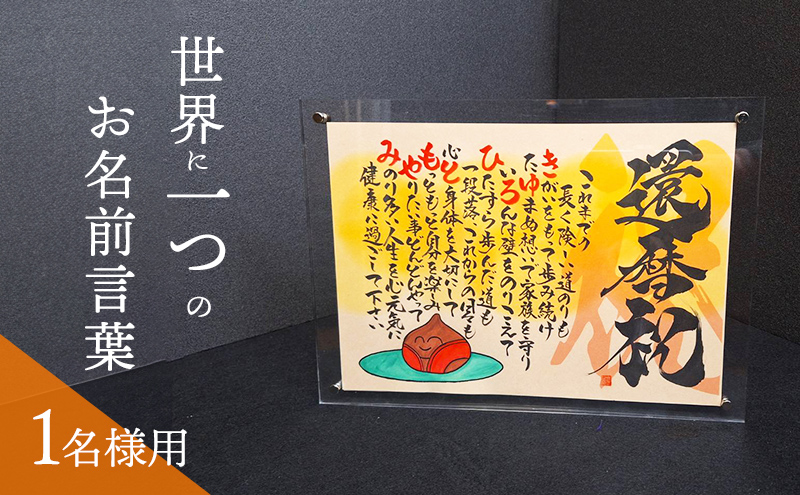 世界に一つの
お名前言葉
還暦祝
これまでの
長く険しい道のりも
きがいをもって歩み続け
たゆまぬ想いで家族を守り
いろんな壁をのりこえて
ひたすら歩んだ道も
一段落これからの日々も
心と身体を大切にして
もっともっと自分を楽しみ
やりたい事どんどんやって
みのり多い人生を心元気に
健康に過ごして下さい
1名様用